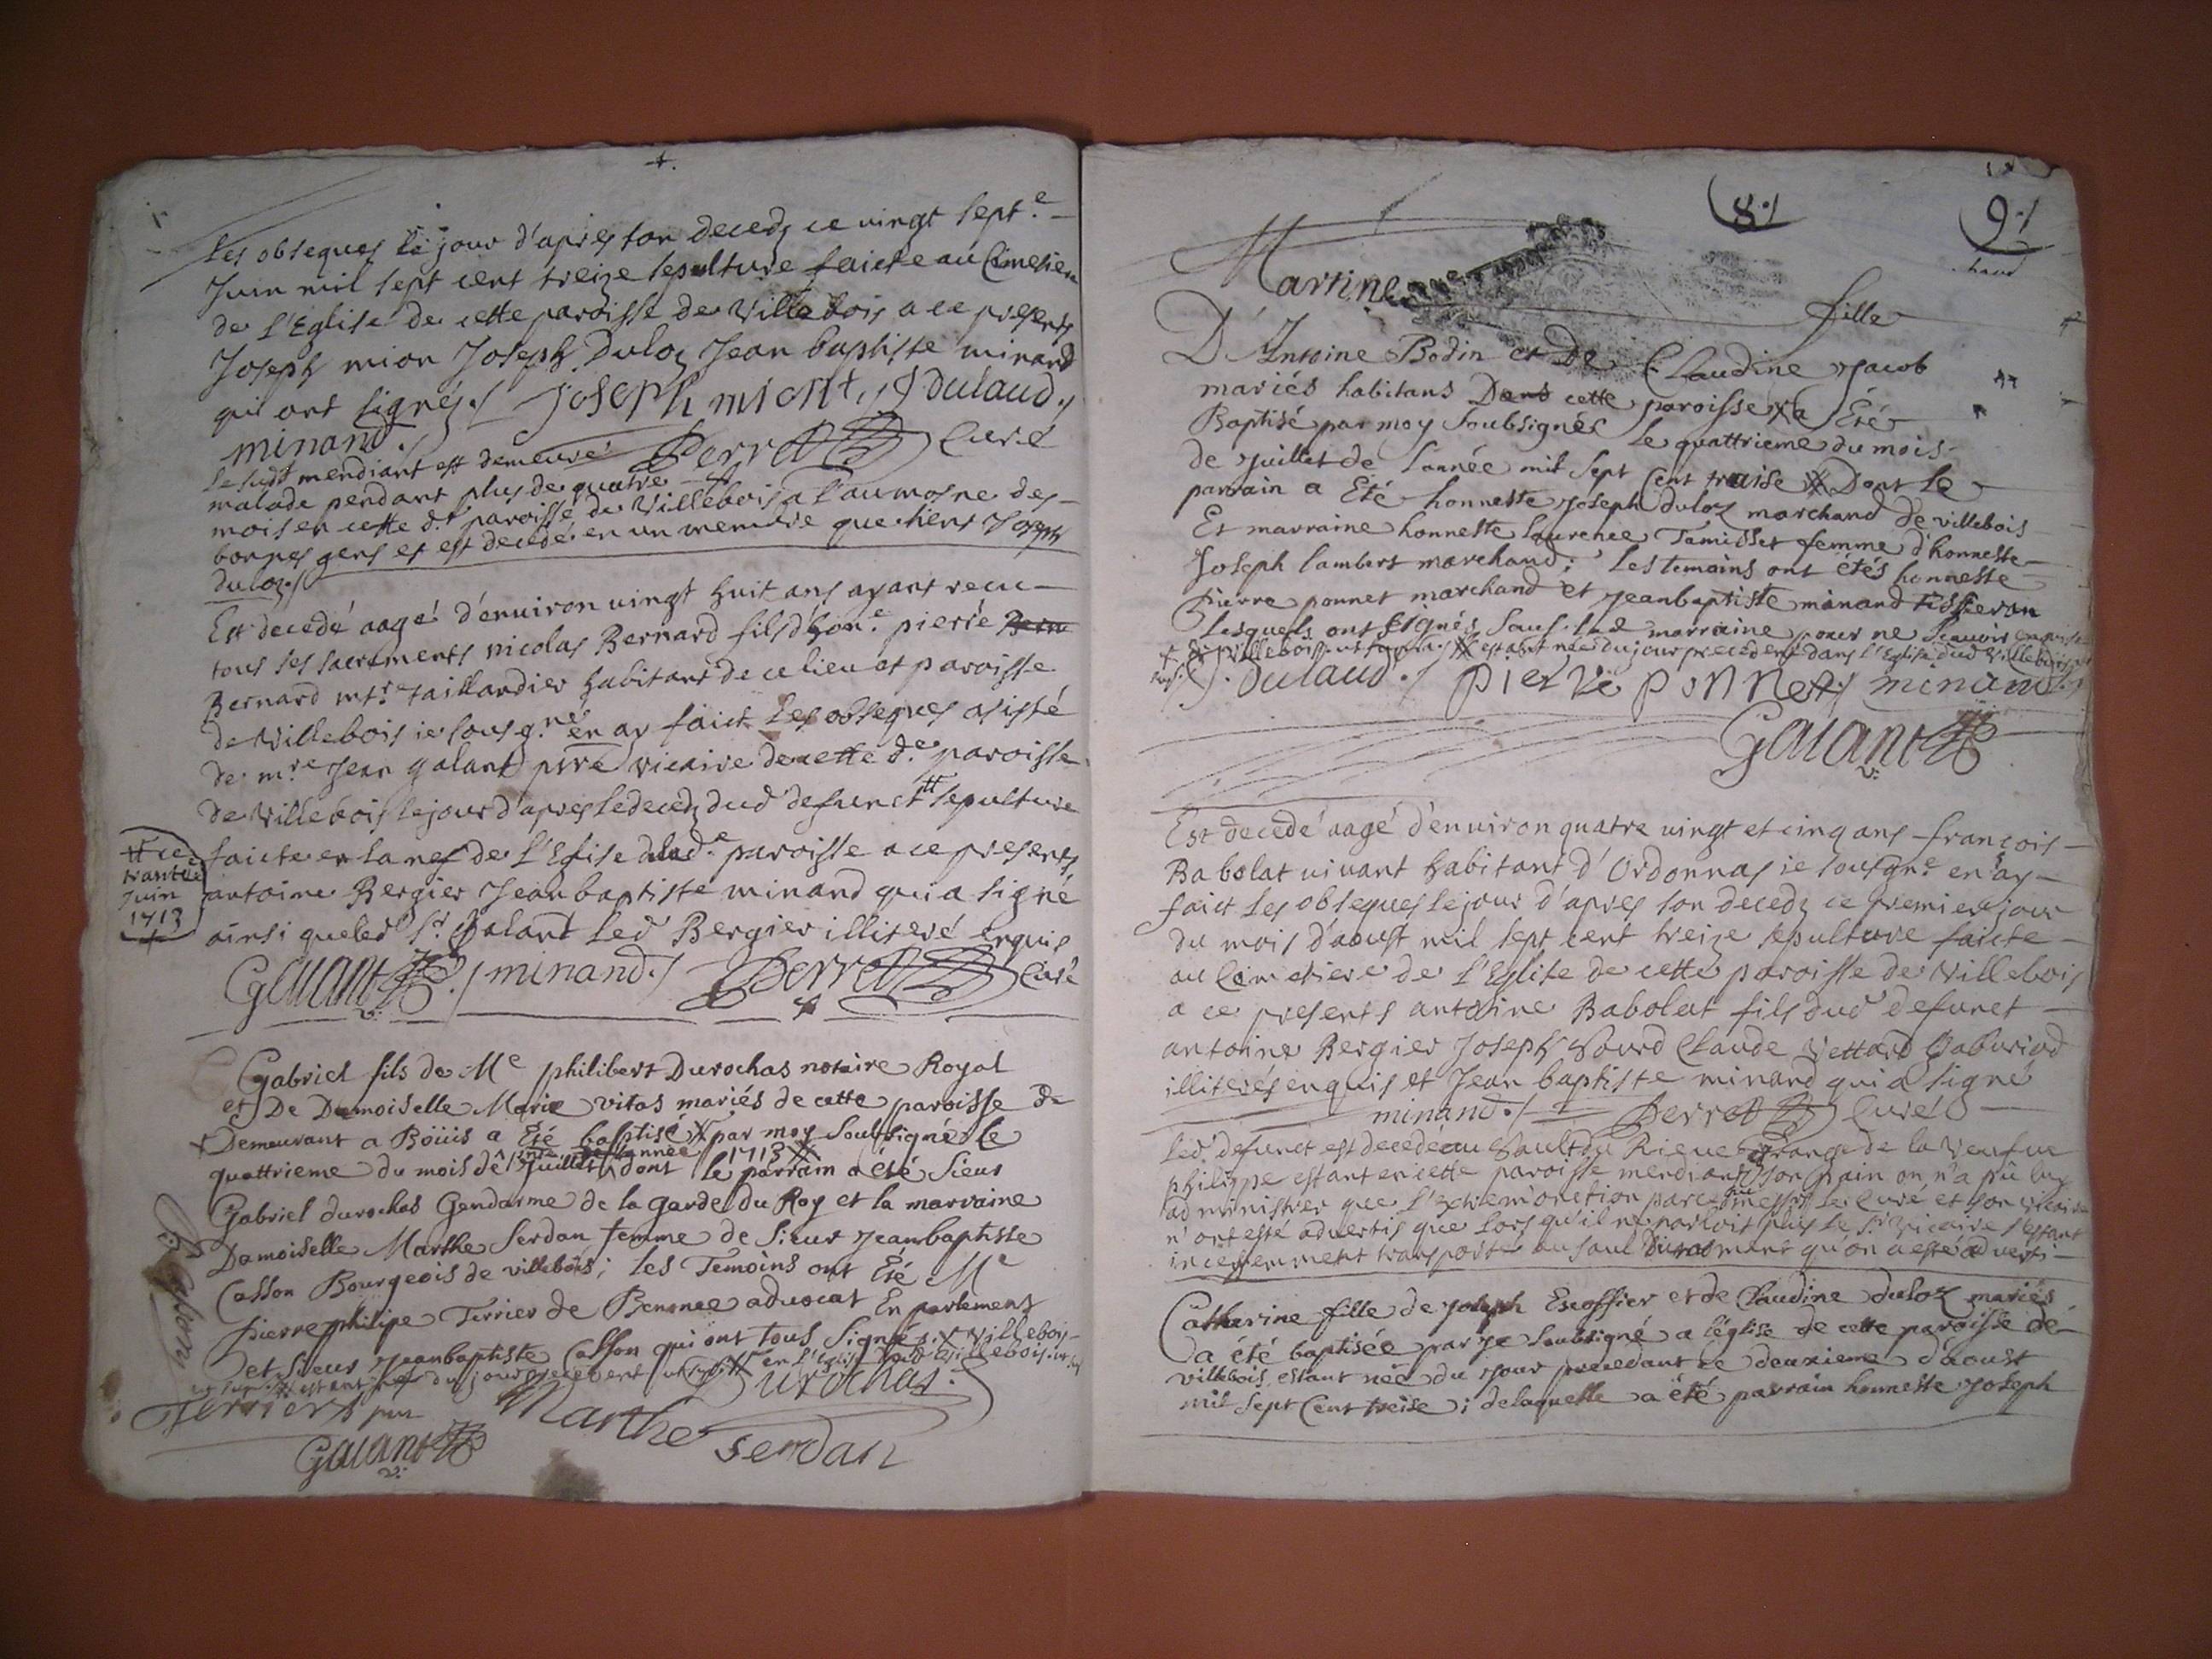 les obseques le jour d'apres son decedz ce vingt sept.e
Juin mil sept cent treize sepulture faicte au Cimetiere
de l'Eglise de cette paroisse de Villebois a ce presents
Joseph mion Joseph Duloz Jean baptiste minand
qui ont signés./ Joseph miont, J dulaud./
minand./ Perret Curé
le sudt mendiant est demeuré
malade pendant plus de quatre
mois en cette d.te paroisse de Villebois a l'aumosne des
bonnes gens et est decedé en un membre que tient Joseph
duloz./
Est decedé aagé d'enuiron vingt huit ans ayant receu
tous ses sacrements nicolas Bernard fils d'hon.e pierre Bern
Bernard mtr.e taillandier habitant de ce lieu et paroisse
de Villebois ie sousg.né en ay faict les obseques asisté
de m.re Jean galant ptre vicaire de cette d.e paroisse
de Villebois le jour d'apres le decedz dud defunct # sepulture
faicte en la nef de l'Eglise de lad.e paroisse a ce presents
antoine Bergier Jean baptiste minand qui a signé
ainsi que led Sr. Galant led Bergier illiteré enquis
# ce
trantiè
Juin
1713
Galant v: ./ minand./ Perret Curé
Gabriel fils de Me philibert Durochas notaire Royal
et De Damoiselle Marie vitas mariés de cette paroisse de
Demeurant a Boüis a Eté baptisé par moy Soubsigné le
quattrieme du mois de Juillet de l'année 1713 dont le parrain a été Sieur
Gabriel durochas Gendarme de la garde du Roy et la marraine
Damoiselle Marthe Serdan femme de Sieur Jeanbaptiste
Casson Bourgeois de villebois; les Temoins ont Eté Me
pierre philipe Terrier de Benonce aduocat En parlement
et Sieur Jeanbaptiste Casson qui ont tous Signés. x villebois
estant né du jour precedent en l'Eglise dud Villebois
Durochas.
Terrier
Marthe Serdan
Galant v:
8./
9./
Martine fille
D'Antoine Bodin et De Claudine Jacob
mariés habitans Dans cette paroisse x a Eté
Baptisé par moy Soubsigné le quattrieme du mois
de Juillet de l'année mil Sept Cent traise Dont le
parrain a Eté honneste Joseph duloz marchand de villebois
Et marraine honneste Laurence Tamisset femme d'honneste
Joseph lambert marchand; les temoins ont étés honneste
Pierre ponnet marchand et Jeanbaptiste minand tisseran
Lesquels ont Signés Sauf lad marraine pour ne Scauoir enquise
estant née du jour precedent dans l'Eglise dud Villebois
J. Dulaud./ pierre ponnet./ minand./
Galant v:
Est decedé aagé d'enuiron quatre vingt et cinq ans françois
Babolat vivant habitant d'Ordonnas ie sousgn.e en ay
faict les obseques le jour d'apres son decedz ce premier jour
du mois d'aoust mil sept cent treize sepulture faicte
au Cimetiere de l'Eglise de cette paroisse de Villebois
a ce presents antoine Babolat fils dud defunct
antoine Bergier Joseph Sourd Claude Vettard Gaburiod
illiterés enquis et Jean baptiste minand qui a signé
minand./ Perret Curé
led. defunct est decede au Sault du Rieu grange de la Veufue
philippe estant en cette paroisse mendiant son pain on n'a pû luy
administrer que l'Extrem'onction parceque messrs le Curé et son vicaire
n'ont esté advertis que lors qu'il ne parloit plus le Sr. Vicaire s'estant
incessemment transporté au Saul du moment qu'on a esté adverti
Catherine fille de Joseph Escoffier et de Claudine duloz mariés
a été baptisée par Je Soubsigné a l'église de cette paroisse de
villebois, estant née du jour precedant ce deuxieme d'aoust
mil Sept Cent treise; de laquelle a été parrain honneste Joseph